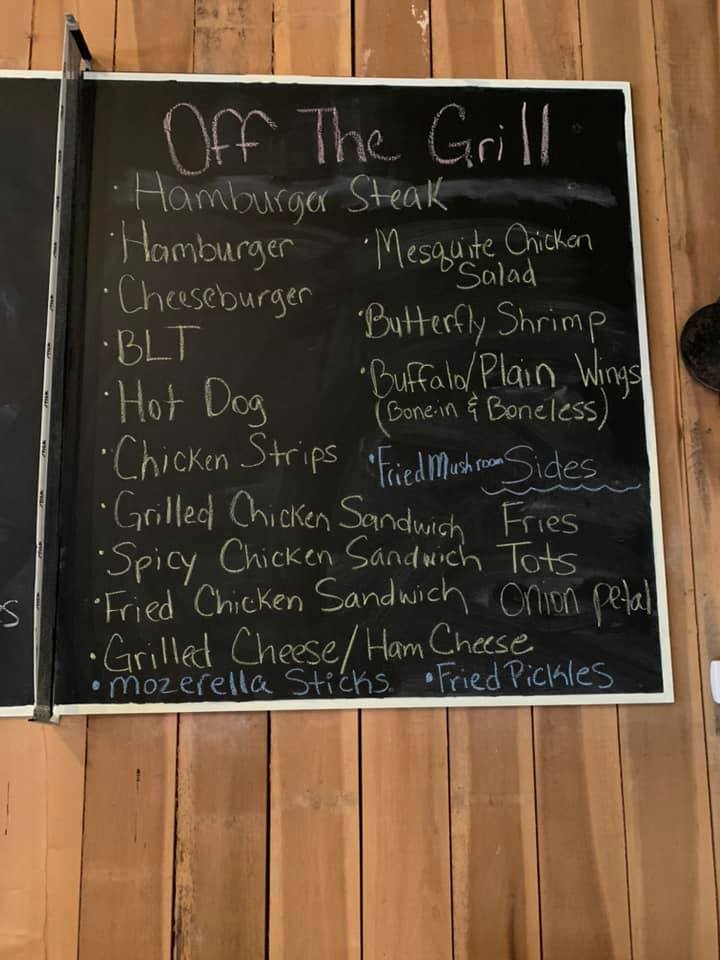 Off The Grill
· Hamburger Steak
· Hamburger
· Cheeseburger
· BLT
· Hot Dog
· Chicken Strips
· Grilled Chicken Sandwich
· Spicy Chicken Sandwich
· Fried Chicken Sandwich
· Grilled Cheese/Ham Cheese
· Mozerella Sticks
· Mesquite Chicken
Salad
· Butterfly Shrimp
· Buffalo/Plain Wings
(Bone-in & Boneless)
· Fried Mushroom
Sides
Fries
Tots
Onion Petal
· Fried Pickles